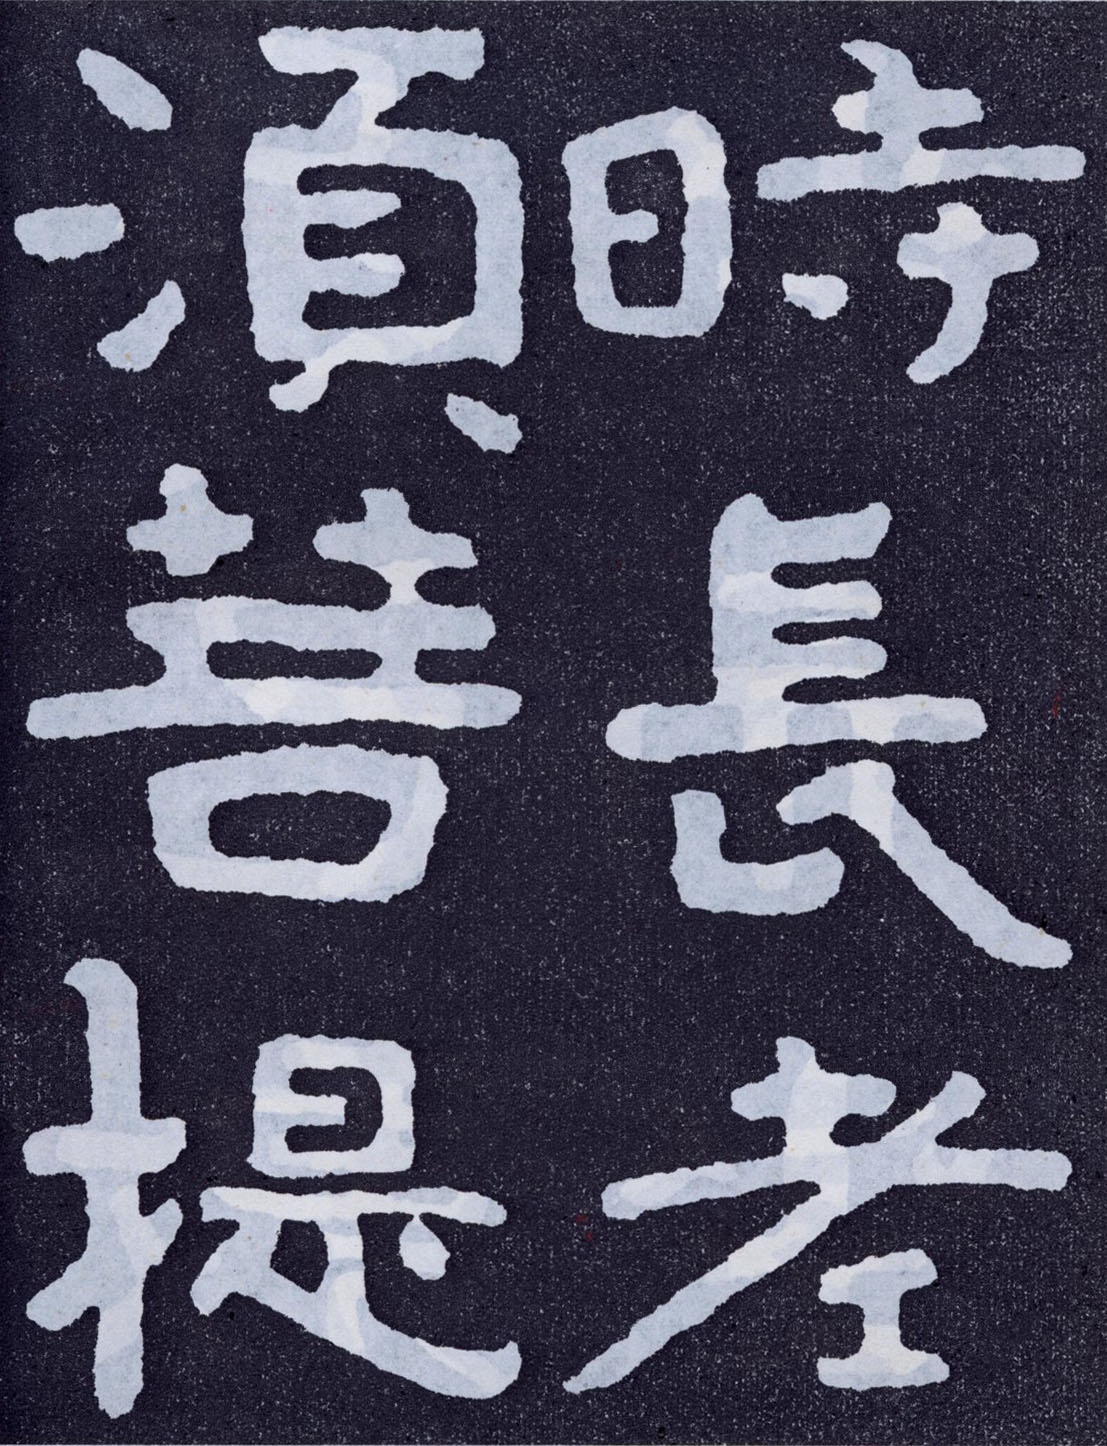 時長老
湏菩提